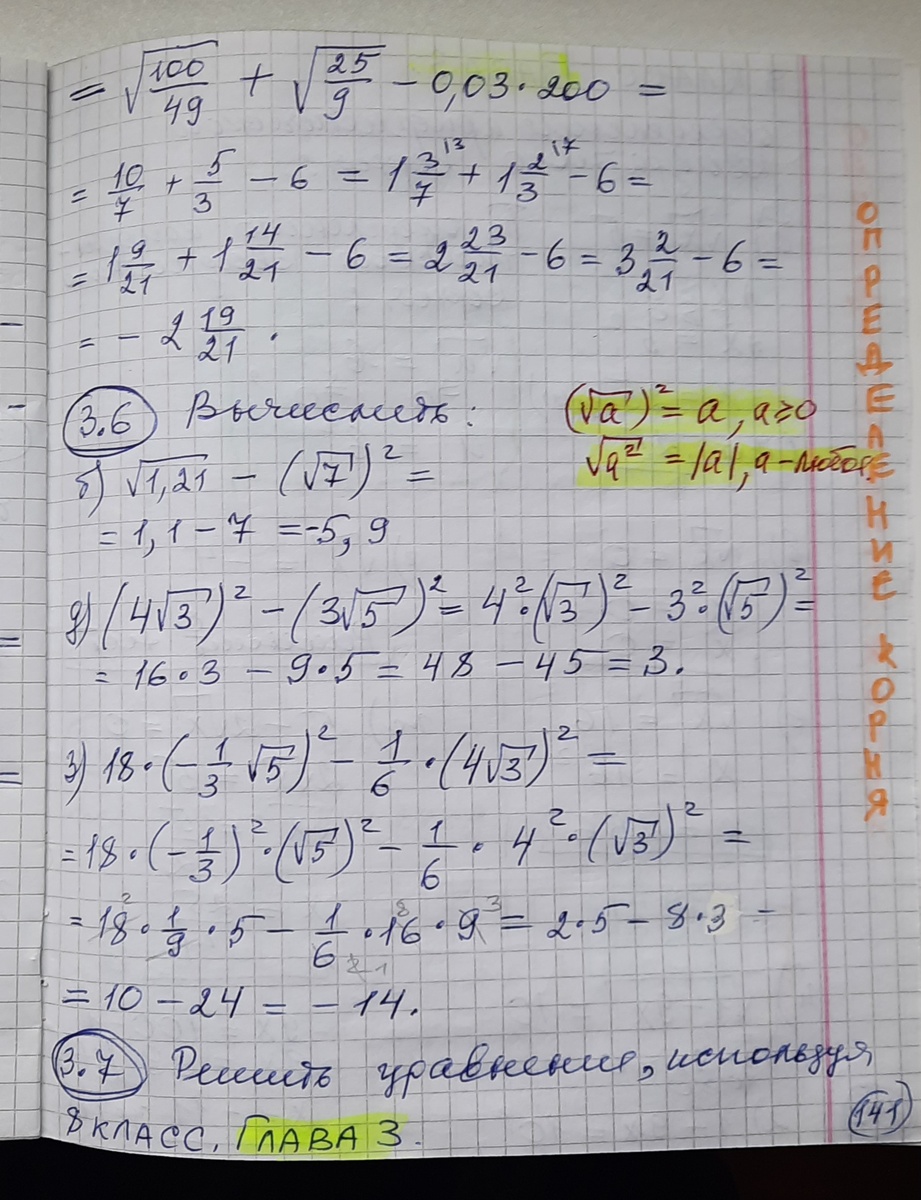 = √(100/49) + √(25/9) − 0,03·200 =
= 10/7 + 5/3 − 6 = 1 3/7 ^13 + 1 2/3 ^17 − 6 =
= 1 9/21 + 1 14/21 − 6 = 2 23/21 − 6 = 3 2/21 − 6 =
= − 2 19/21 .
3.6 Вычислить:
(√a)² = a, a≥0
√a² = |a|, a – любое
б) √1,21 − (√7)² =
= 1,1 − 7 = -5,9
д) (4√3)² − (3√5)² = 4²·(√3)² − 3²·(√5)² =
= 16·3 − 9·5 = 48 − 45 = 3.
з) 18·(−1/3 √5)² − 1/6 ·(4√3)² =
= 18·(−1/3)²·(√5)² − 1/6 · 4²·(√3)² =
= 18 ^2 · 1/9 · 5 − 1/6 · 16 ^8 · 9 ^3 = 2·5 − 8·3 =
= 10 − 24 = − 14.
3.7 Решить уравнение, используя
8 КЛАСС. ГЛАВА 3.
141
ОПРЕДЕЛЕНИЕ КОРНЯ